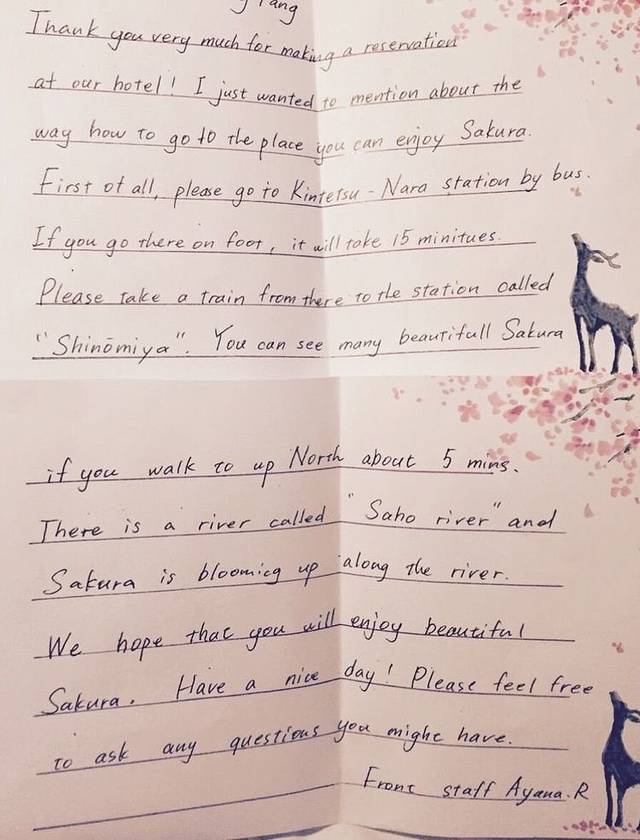 Thank you very much for making a reservation
at our hotel! I just wanted to mention about the
way how to go to the place you can enjoy Sakura.
First of all, please go to Kintetsu - Nara station by bus.
If you go there on foot, it will take 15 minitues.
Please take a train from there to the station called
"Shinōmiya". You can see many beautifull Sakura
if you walk to up North about 5 mins.
There is a river called "Saho river" and
Sakura is bloomicg up along the river.
We hope that you will enjoy beautiful
Sakura. Have a nice day! Please feel free
to ask any questions you might have.
Front staff Ayana.R